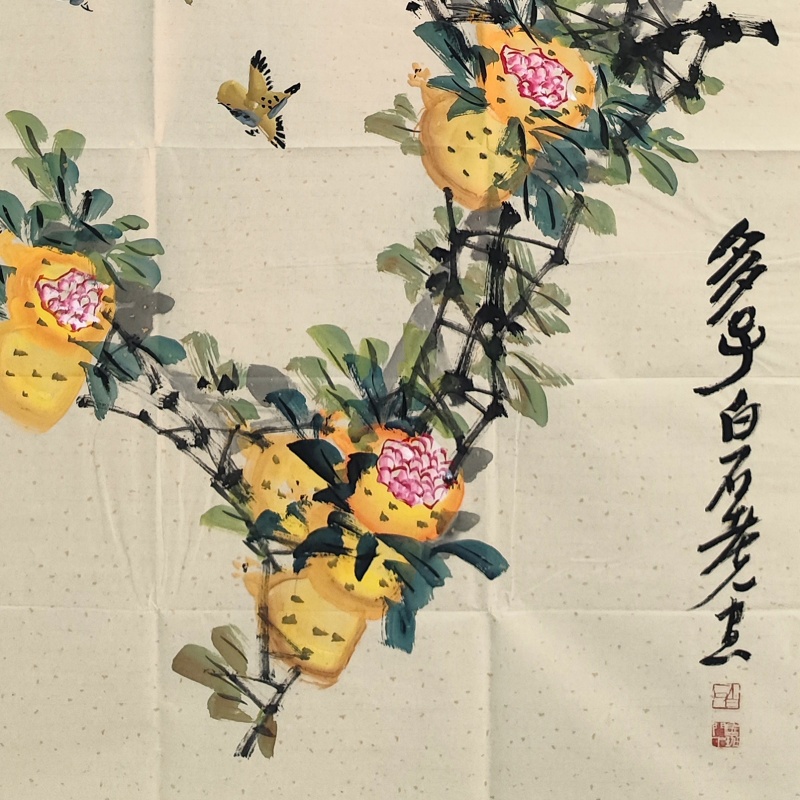 多子白石老人畫